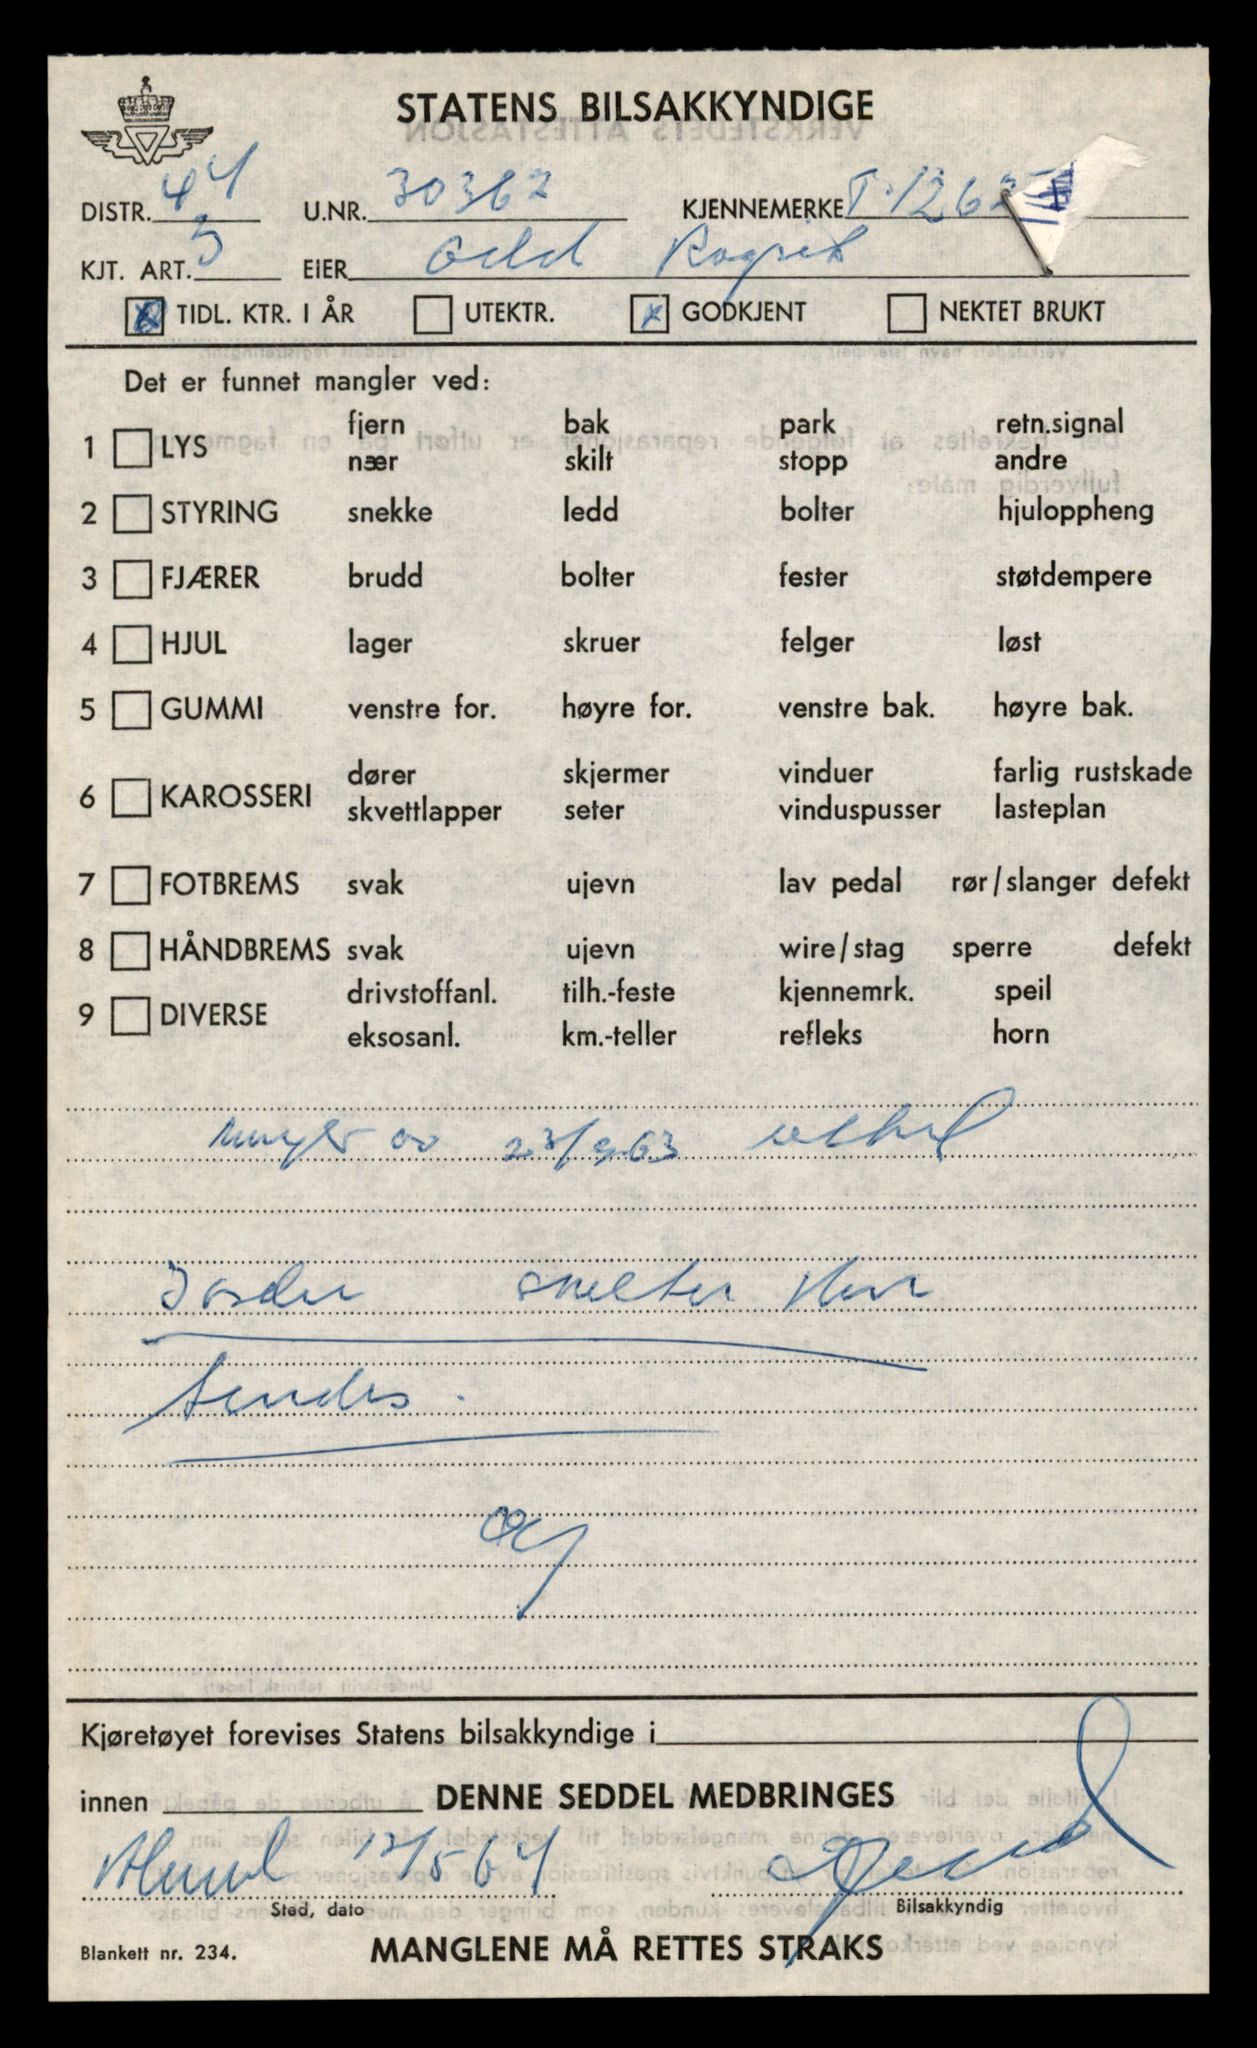 STATENS BILSAKKYNDIGE
DISTR. 44 U.NR. 30362 KJENNEMERKE T-1262
KJT. ART. 3 EIER Odd
TIDL. KTR. I ÅR UTEKTR. GODKJENT NEKTET BRUKT
Det er funnet mangler ved:
fjern bak park retn.signal
1 LYS
nær skilt stopp andre
2 STYRING snekke ledd bolter hjuloppheng
3 FJÆRER brudd bolter fester støtdempere
4 HJUL lager skruer felger løst
5 GUMMI venstre for. høyre for. venstre bak. høyre bak.
dører skjermer vinduer farlig rustskade
6 KAROSSERI
skvettlapper seter vinduspusser lasteplan
7 FOTBREMS svak ujevn lav pedal rør/slanger defekt
8 HÅNDBREMS svak ujevn wire/stag sperre defekt
drivstoffanl. tilh.-feste kjennemrk. speil
9 DIVERSE
eksosanl. km.-teller refleks horn
23/9-63
sendes.
Kjøretøyet forevises Statens bilsakkyndige i
innen DENNE SEDDEL MEDBRINGES
12/5 64
Sted, dato Bilsakkyndig
Blankett nr. 234. MANGLENE MÅ RETTES STRAKS